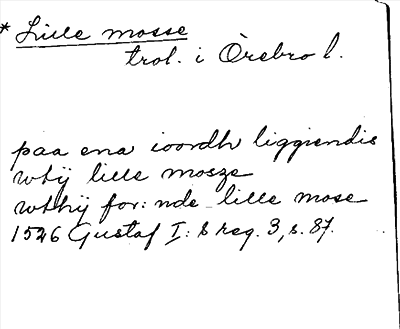 * Lille mosse
trol. i Örebro l.
paa ena ioordh liggiendis
wtij lille mosze
wthij for: nde lille mose
1546 Gustaf I: s reg. 3, s. 87.